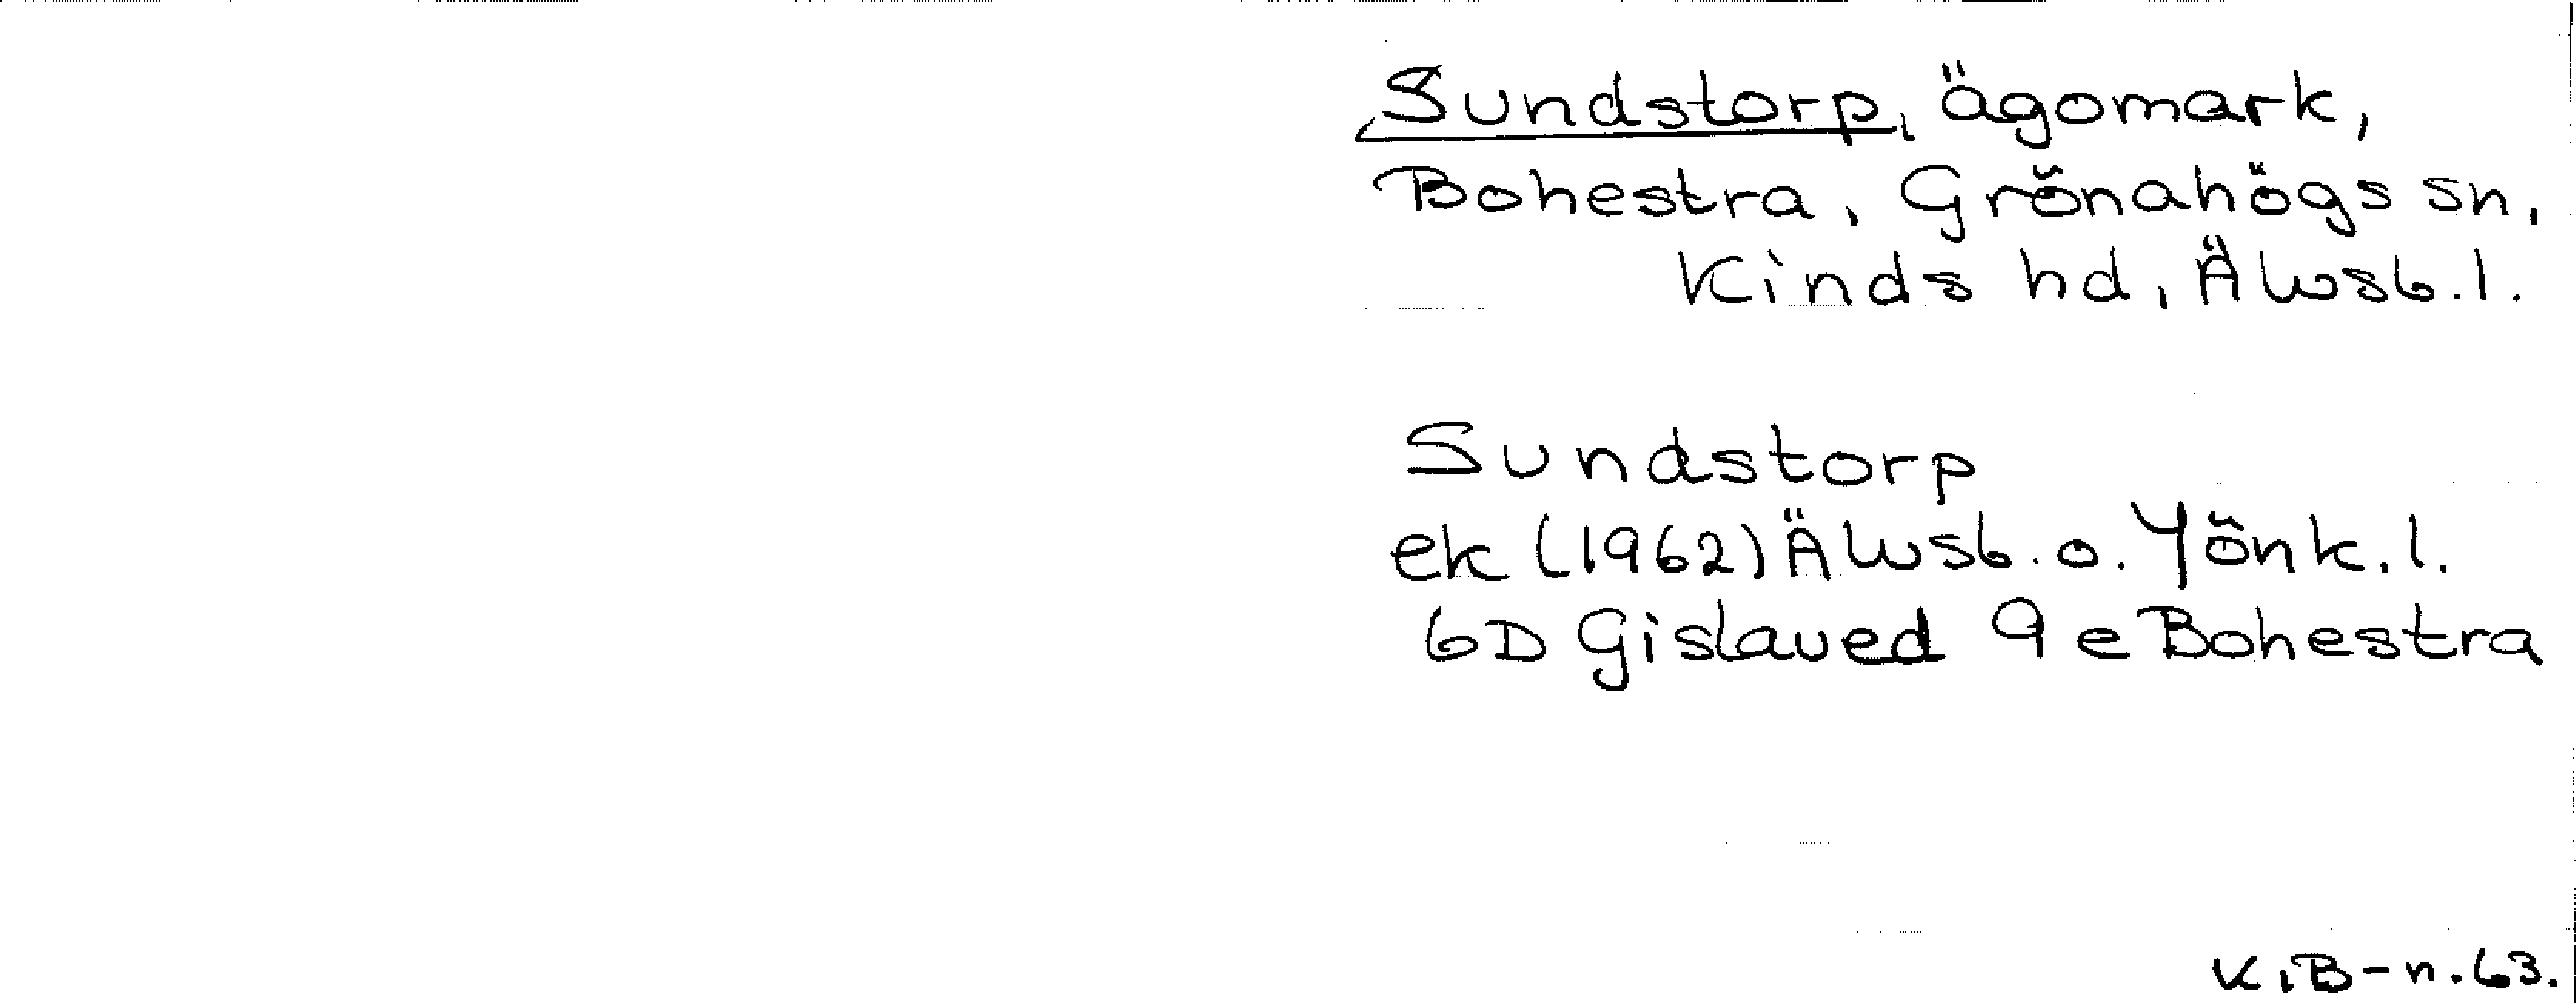 Sundstorp, ägomark,
Bohestra, Grönahögs sn,
Kinds hd, Älvsb.l.
Sundstorp
ek (1962) Älvsb. o. Jönk.l.
6D Gislaved 9e Bohestra
K.B-n.63.